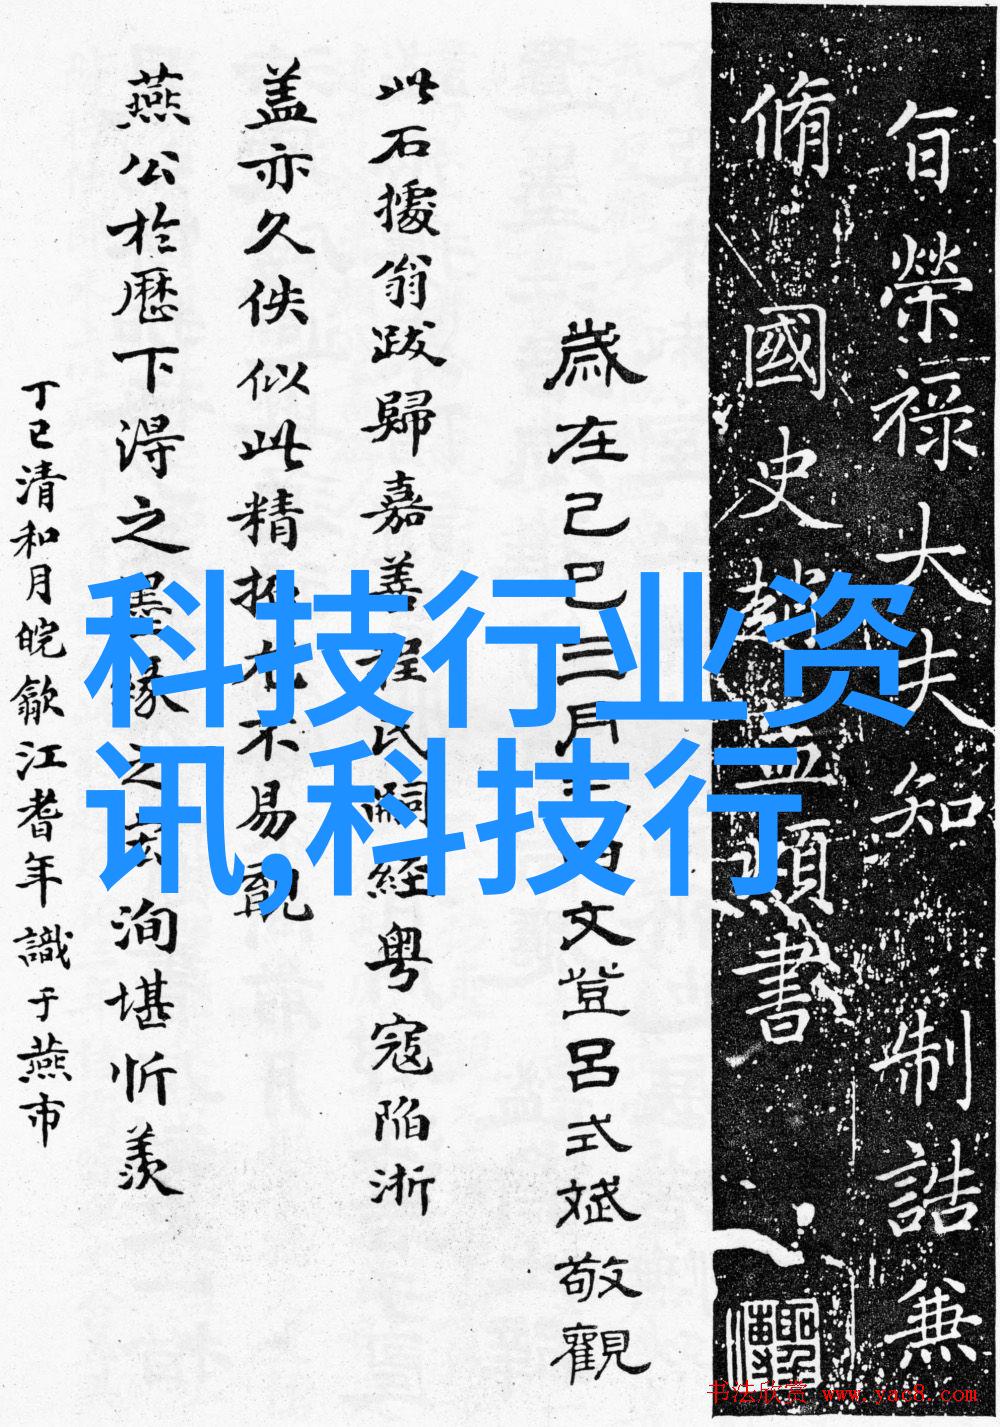 自榮祿大夫知 制誥兼
脩國史趙孟頫書
歲在己巳三月
文登呂式斌敬觀
此石據翁跋歸嘉善程氏嗣經粵寇陷浙
盖亦久佚似此精拓尤不易覯
燕公於歷下得之墨緣之
洵堪忻羨
丁巳清和月皖歙江耆年識于燕市
科技行业资
讯,科技行
书法欣赏 www.yac8.com